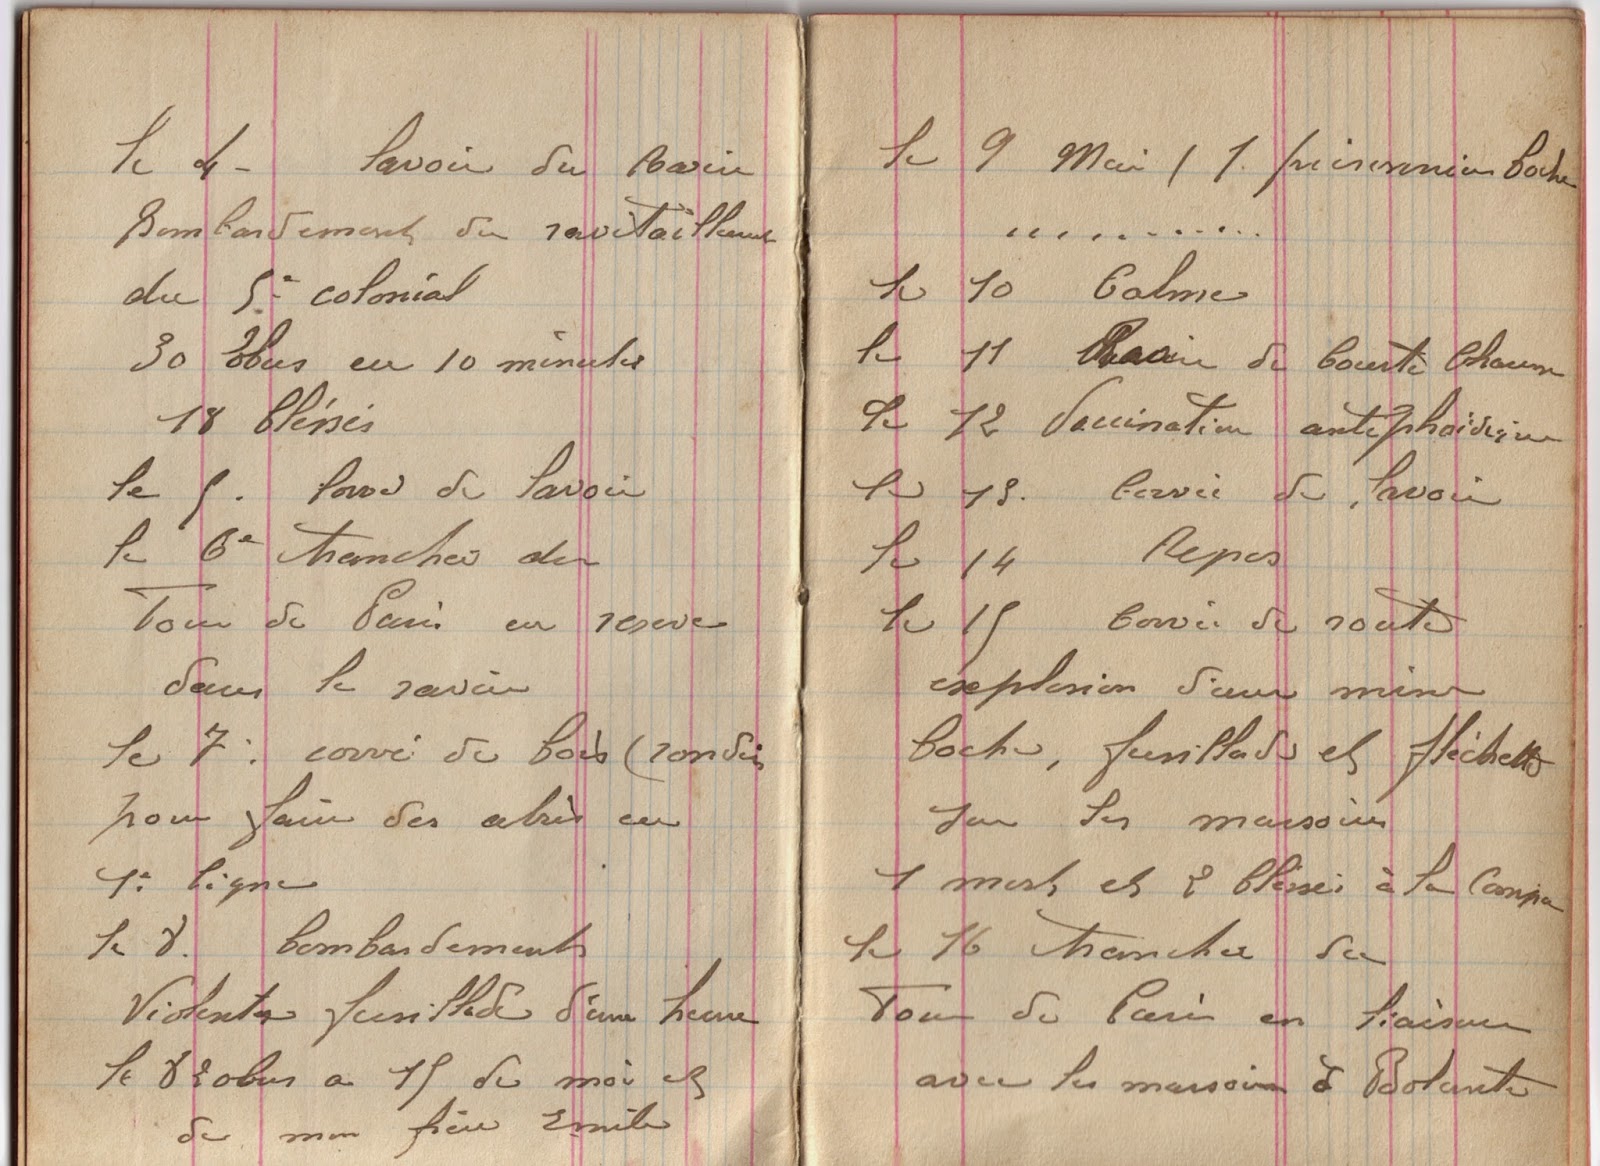 le 4 - lavoir du Ravin
Bombardement du ravitaillement
du 5e colonial
30 obus en 10 minutes
18 bléssés
le 5. corvé de lavoir
le 6e tranchée du
Four de Paris en reserve
dans le ravin
le 7: corvé de bois (rondins
pour faire des abris en
1e ligne
le 8. bombardements
Violente fusillade d'une heure
le 8 2 obus a 15 de moi et
de mon frère Emile
le 9 Mai / 1. prisonnier boche
...........
le 10 Calme
le 11 Ravin de Courte Chausse
le 12 Vaccination antiphoidique
le 13. Corvée de lavoir
le 14 Repos
le 15 Corvée de route
explosion d'une mine
boche, fusillade et fléchettes
sur les marsouins
1 mort et 2 blessés à la Compa
le 16 tranchée du
Four de Paris en liaison
avec les marsouins & Bolante